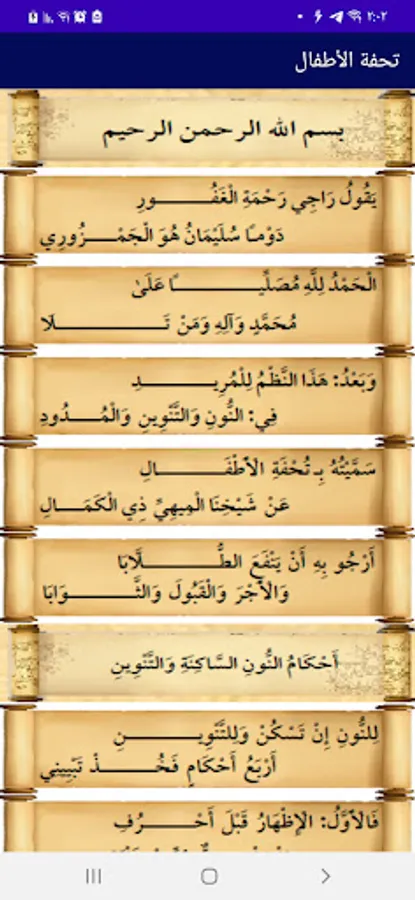 ٢:٠٢
تحفة الأطفال
بسم الله الرحمن الرحيم
يَقُولُ رَاجِي رَحْمَةِ الْغَفُـــــــــورِ
دَوْمًا سُلَيْمَانُ هُوَ الْجَمْـــــزُورِي
الْحَمْدُ لِلَّهِ مُصَلِّيـــــــــــــًا عَلَىٰ
مُحَمَّدٍ وَآلِهِ وَمَنْ تَـــــــــــــلَا
وَبَعْدُ: هَذَا النَّظْمُ لِلْمُرِيـــــــــدِ
فِي: النُّونِ وَالتَّنْوِينِ وَالْمُـــدُودِ
سَمَّيْتُهُ بِـ تُحْفَةِ الْأَطْفَـــــــــالِ
عَنْ شَيْخِنَا الْمِيهِيِّ ذِي الْكَمَـــالِ
أَرْجُو بِهِ أَنْ يَنْفَعَ الطُّـــــــلَّابَا
وَالْأَجْرَ وَالْقَبُولَ وَالثَّـــــــوَابَا
أَحْكَامُ النُّونِ السَّاكِنَةِ وَالتَّنْوِينِ
لِلنُّونِ إِنْ تَسْكُنْ وَلِلتَّنْوِيـــــــــنِ
أَرْبَعُ أَحْكَامٍ فَخُـــــذْ تَبْيِينِي
فَالْأَوَّلُ: الْإِظْهَارُ قَبْلَ أَحْـــــرُفِ